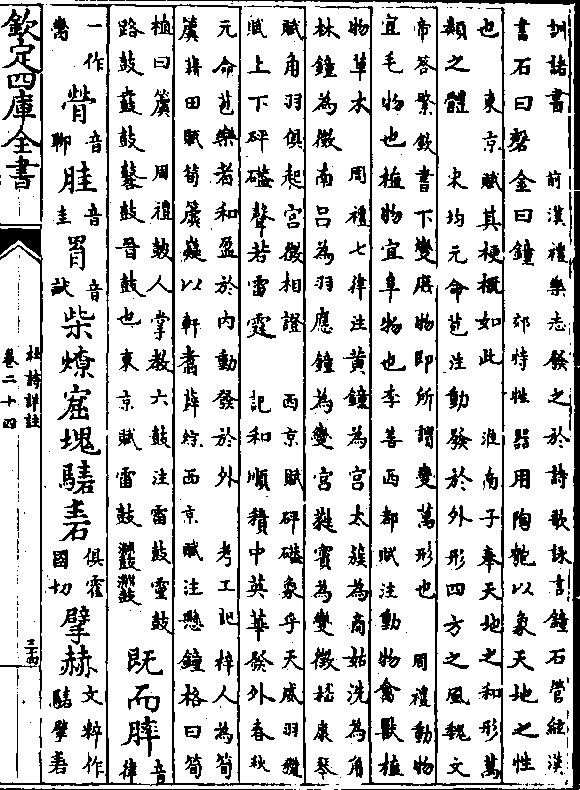 訓諸書　前漢禮樂志發之於詩歌詠言鐘石管絃漢
書石曰磬金曰鐘　郊特牲器用陶匏以象天地之性
也　東京賦其梗概如此　淮南子奉天地之和形萬
類之體　宋均元命苞注動發於外形四方之風魏文
帝答繁欽書下變庶物即所謂變萬形也　周禮動物
宜毛物也植物宜阜物也李善西都賦注動物禽獸植
物草木　周禮七律注黃鐘為宮太蔟為商姑洗為角
林鐘為徵南呂為羽應鐘為變宮蕤賓為變徵嵇康琴
賦角羽俱起宮徵相證　西京賦砰磕象乎天威羽獵
賦上下砰磕聲若雷霆　記和順積中英華發外春秋
元命苞樂者和盈於內動發於外　考工記梓人為筍
簴藉田賦筍簴嶷以軒翥薛綜西京賦注懸鐘格曰筍
植曰簴　周禮鼓人掌教六鼓注雷鼓靈鼓
路鼓鼖鼓鼛鼓晉鼓也東京賦雷鼓鼝鼝
既而膟音律
一作膋膋音聊胿音圭胃音試柴燎窟塊騞砉俱霍國切擘赫文粹作騞擘砉
欽定四庫全書
杜詩詳註
卷二十四
三十四